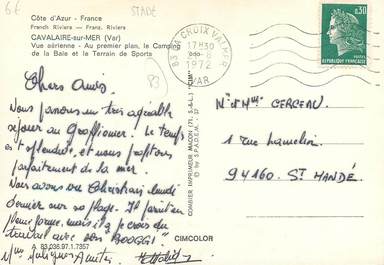 6€
STADE
Côte d'Azur - France
French Riviera - Franz. Riviera
CAVALAIRE-sur-MER (Var)
Vue aérienne - Au premier plan, le Camping
de la Baie et le Terrain de Sports
83
83 LA CROIX VALMER
17H30
1972
VAR
0,30
REPUBLIQUE FRANÇAISE
Chers Amis.
Nous passons un très agréable
séjour au Graffionier. Le temps
est splendide, et nous profitons
parfaitement de la mer.
Nous avons vu Christian lundi
dernier sur sa plage. Il paraît en
pleine forme, mais il y a je crois du
travail avec son BOOGGI
Amitiés
COMBIER IMPRIMEUR MACON (71, S.-&-L.) "CIM"
© by S.P.A.D.E.M.
Mr et Mme CERCEAU
1 rue
94160. St MANDÉ
A. 83.036.97.1.7357
CIMCOLOR